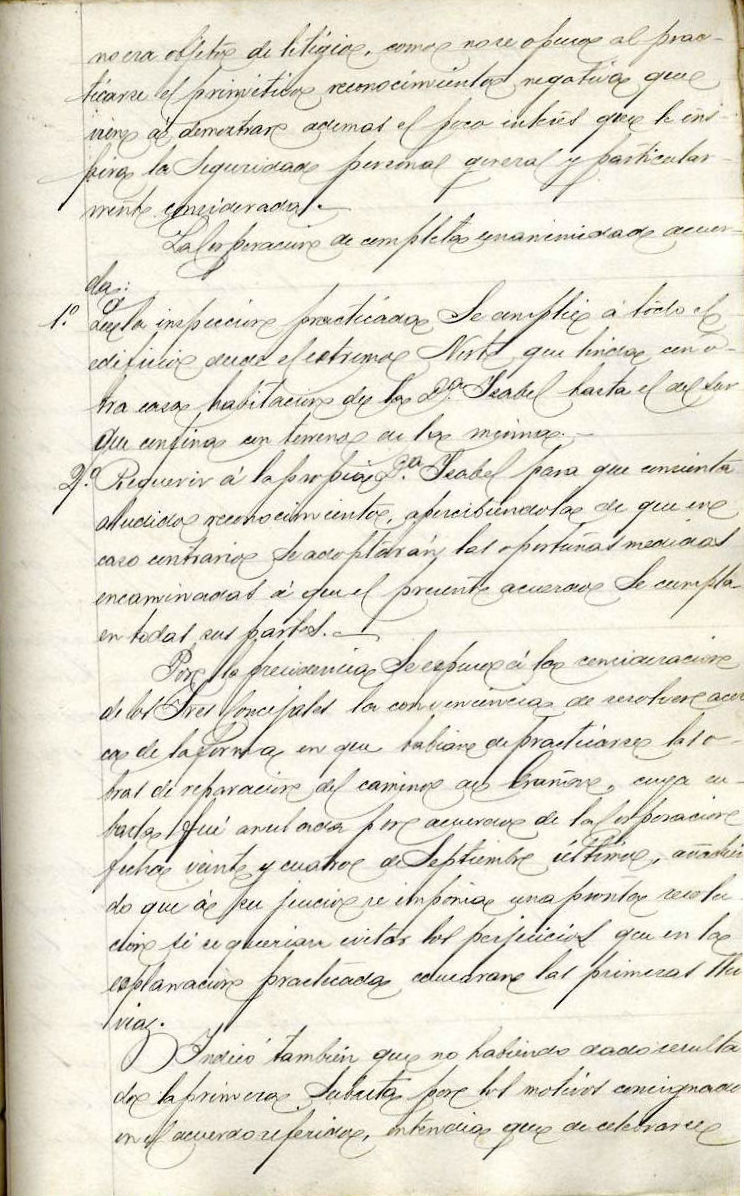 no era objeto de litigio, como no se opuso al prac-
ticarse el primitivo reconocimiento negativa que
viene á demostrar ademas el poco interés que le ins-
pira la seguridad personal general y particular-
mente considerada.
La Corporacion de completa unanimidad acuer-
da:
1.º Que la inspeccion practicada se amplie á todo el
edificio desde el extremo Norte, que linda con o-
tra casa habitacion de la D.ª Isabel hasta el del Sur
que confina con terreno de la misma.
2.º Requerir á la propia D.ª Isabel para que consienta
aludido reconocimiento, apercibiendola de que en
caso contrario se adoptarán las oportunas medidas
encaminadas á que el presente acuerdo se cumpla
en todas sus partes.
Por la presidencia se expuso á la consideracion
de los Sres Concejales la conveniencia de resolver acer
ca de la forma en que habian de practicarse las o-
bras de reparacion del camino de Crañon, cuya su-
basta fué anulada por acuerdo de la Corporacion
fecha veinte y cuatro de Septiembre último, añadien
do que á su juicio se imponia una pronta resolu-
cion si se querian evitar los perjuicios que en la
explanacion practicada causaran las primeras llu
vias.
Indicó tambien que no habiendo dado resulta
do la primera subasta por los motivos consignado
en el acuerdo referido, entendia que de celebrarse